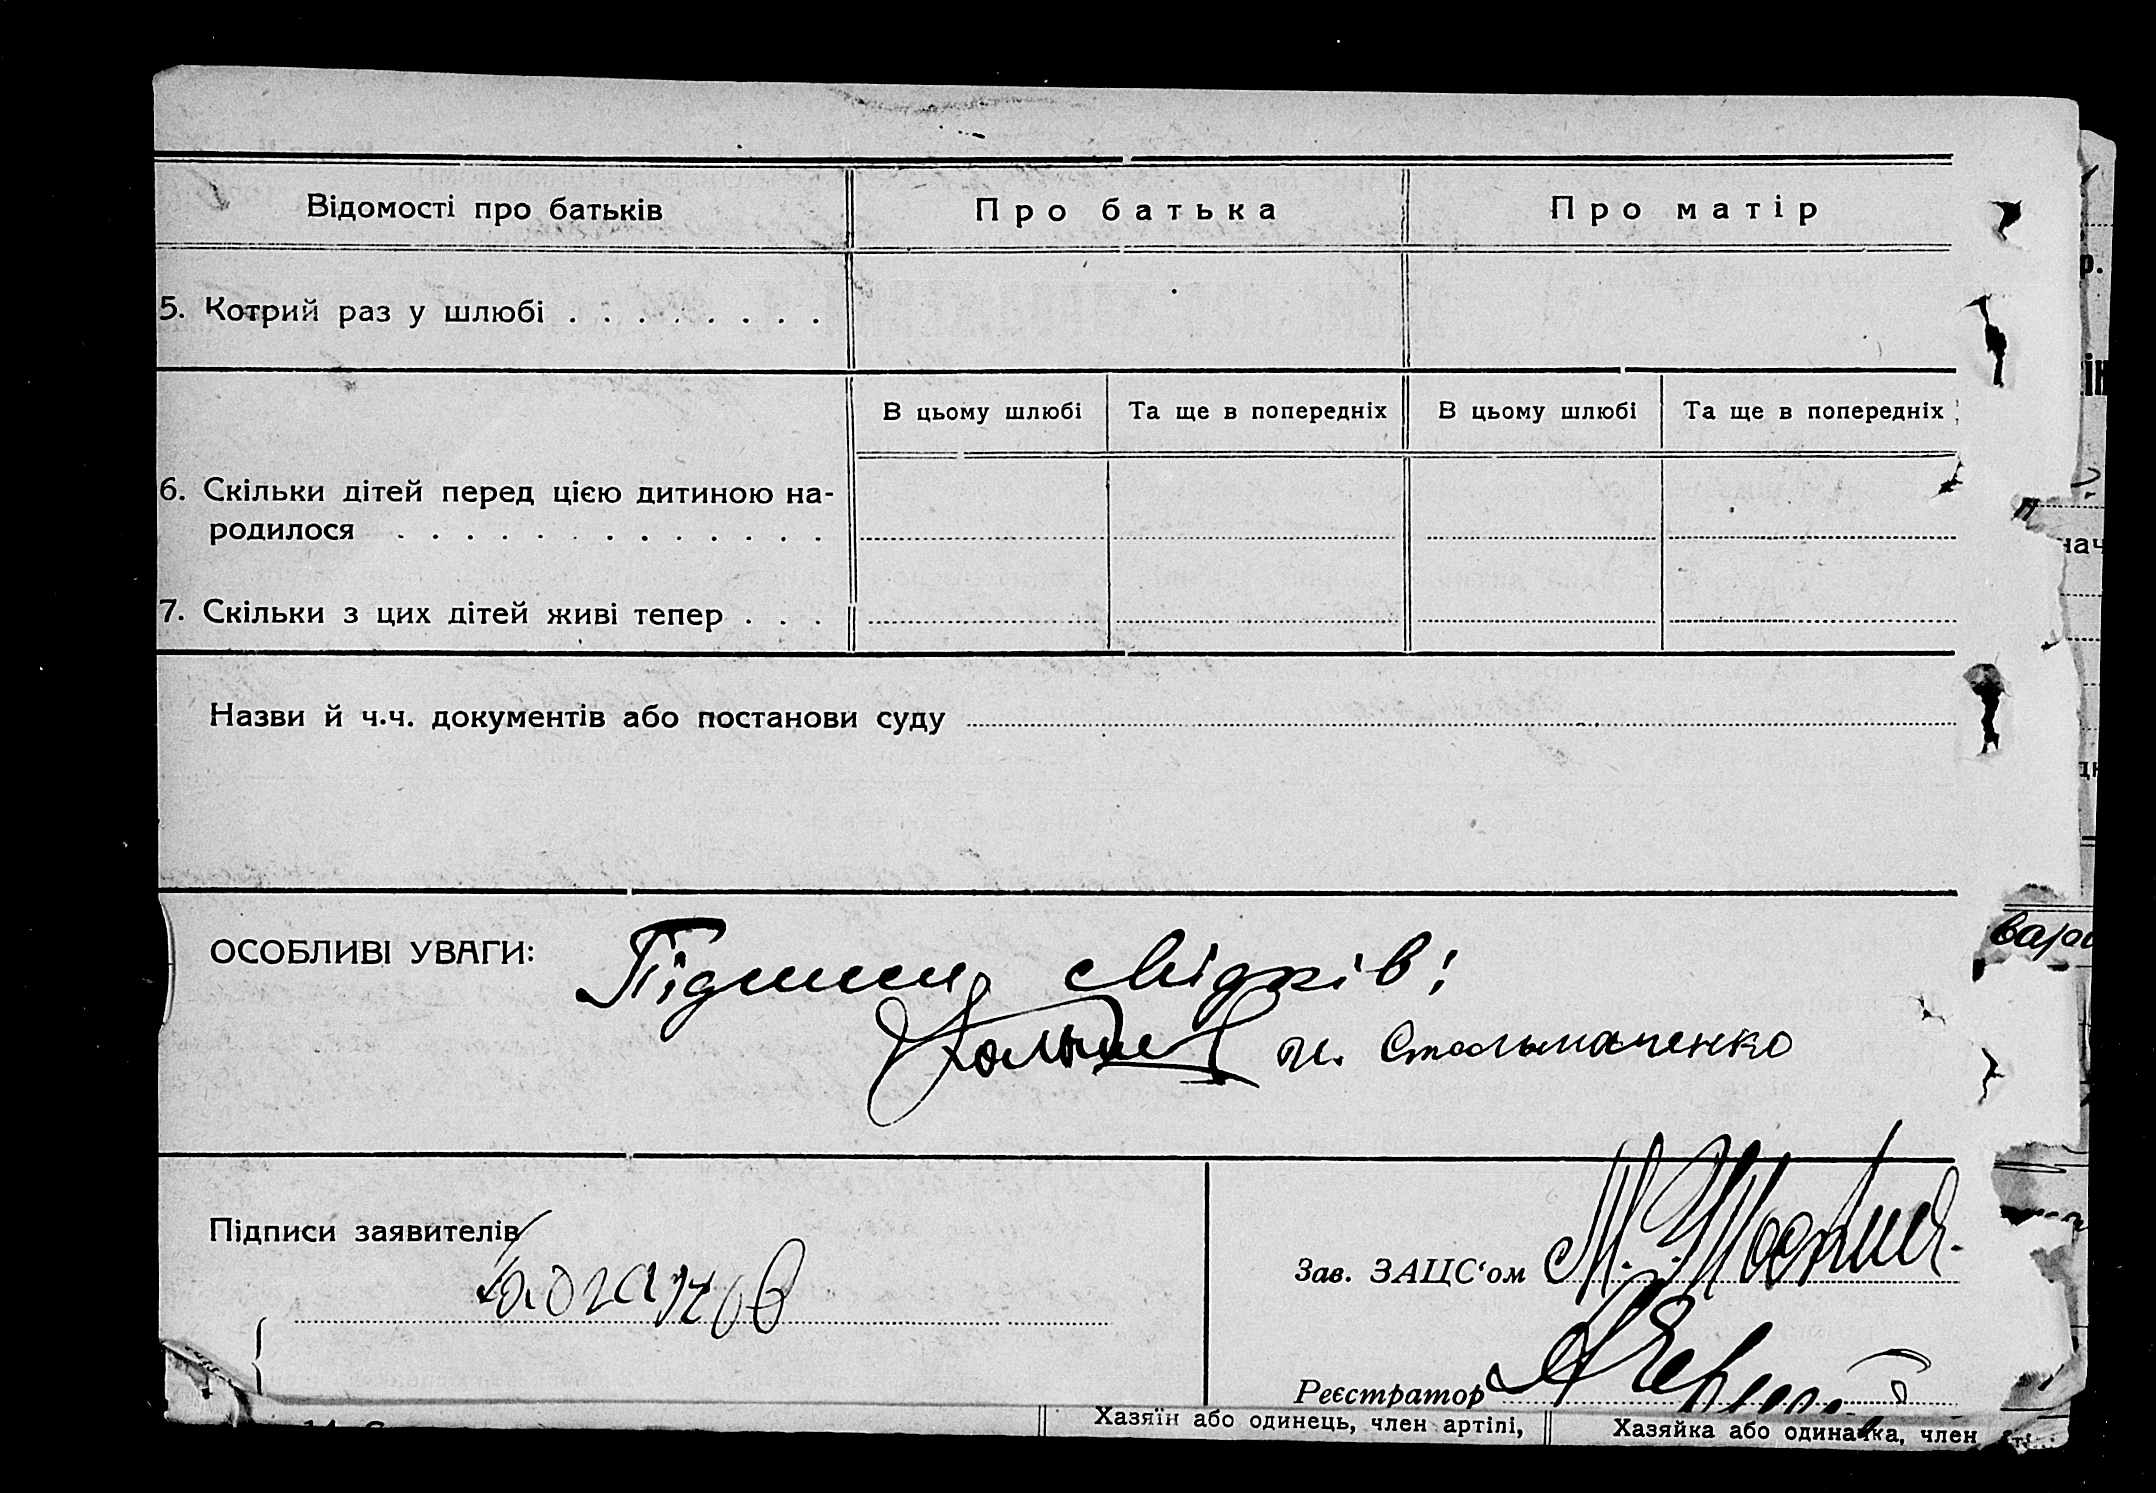 Відомості про батьків
Про батька
Про матір
5. Котрий раз у шлюбі . . . . . . . .
В цьому шлюбі
Та ще в попередніх
В цьому шлюбі
Та ще в попередніх
6. Скільки дітей перед цією дитиною на-
родилося . . . . . . . . . . . . .
7. Скільки з цих дітей живі тепер . . .
Назви й ч.ч. документів або постанови суду
ОСОБЛИВІ УВАГИ:
Підписи свідків:
Стольмаченко
Підписи заявителів
Зав. ЗАЦС‘ом
Реєстратор
Хазяїн або одинець, член артілі,
Хазяйка або одиначка, член